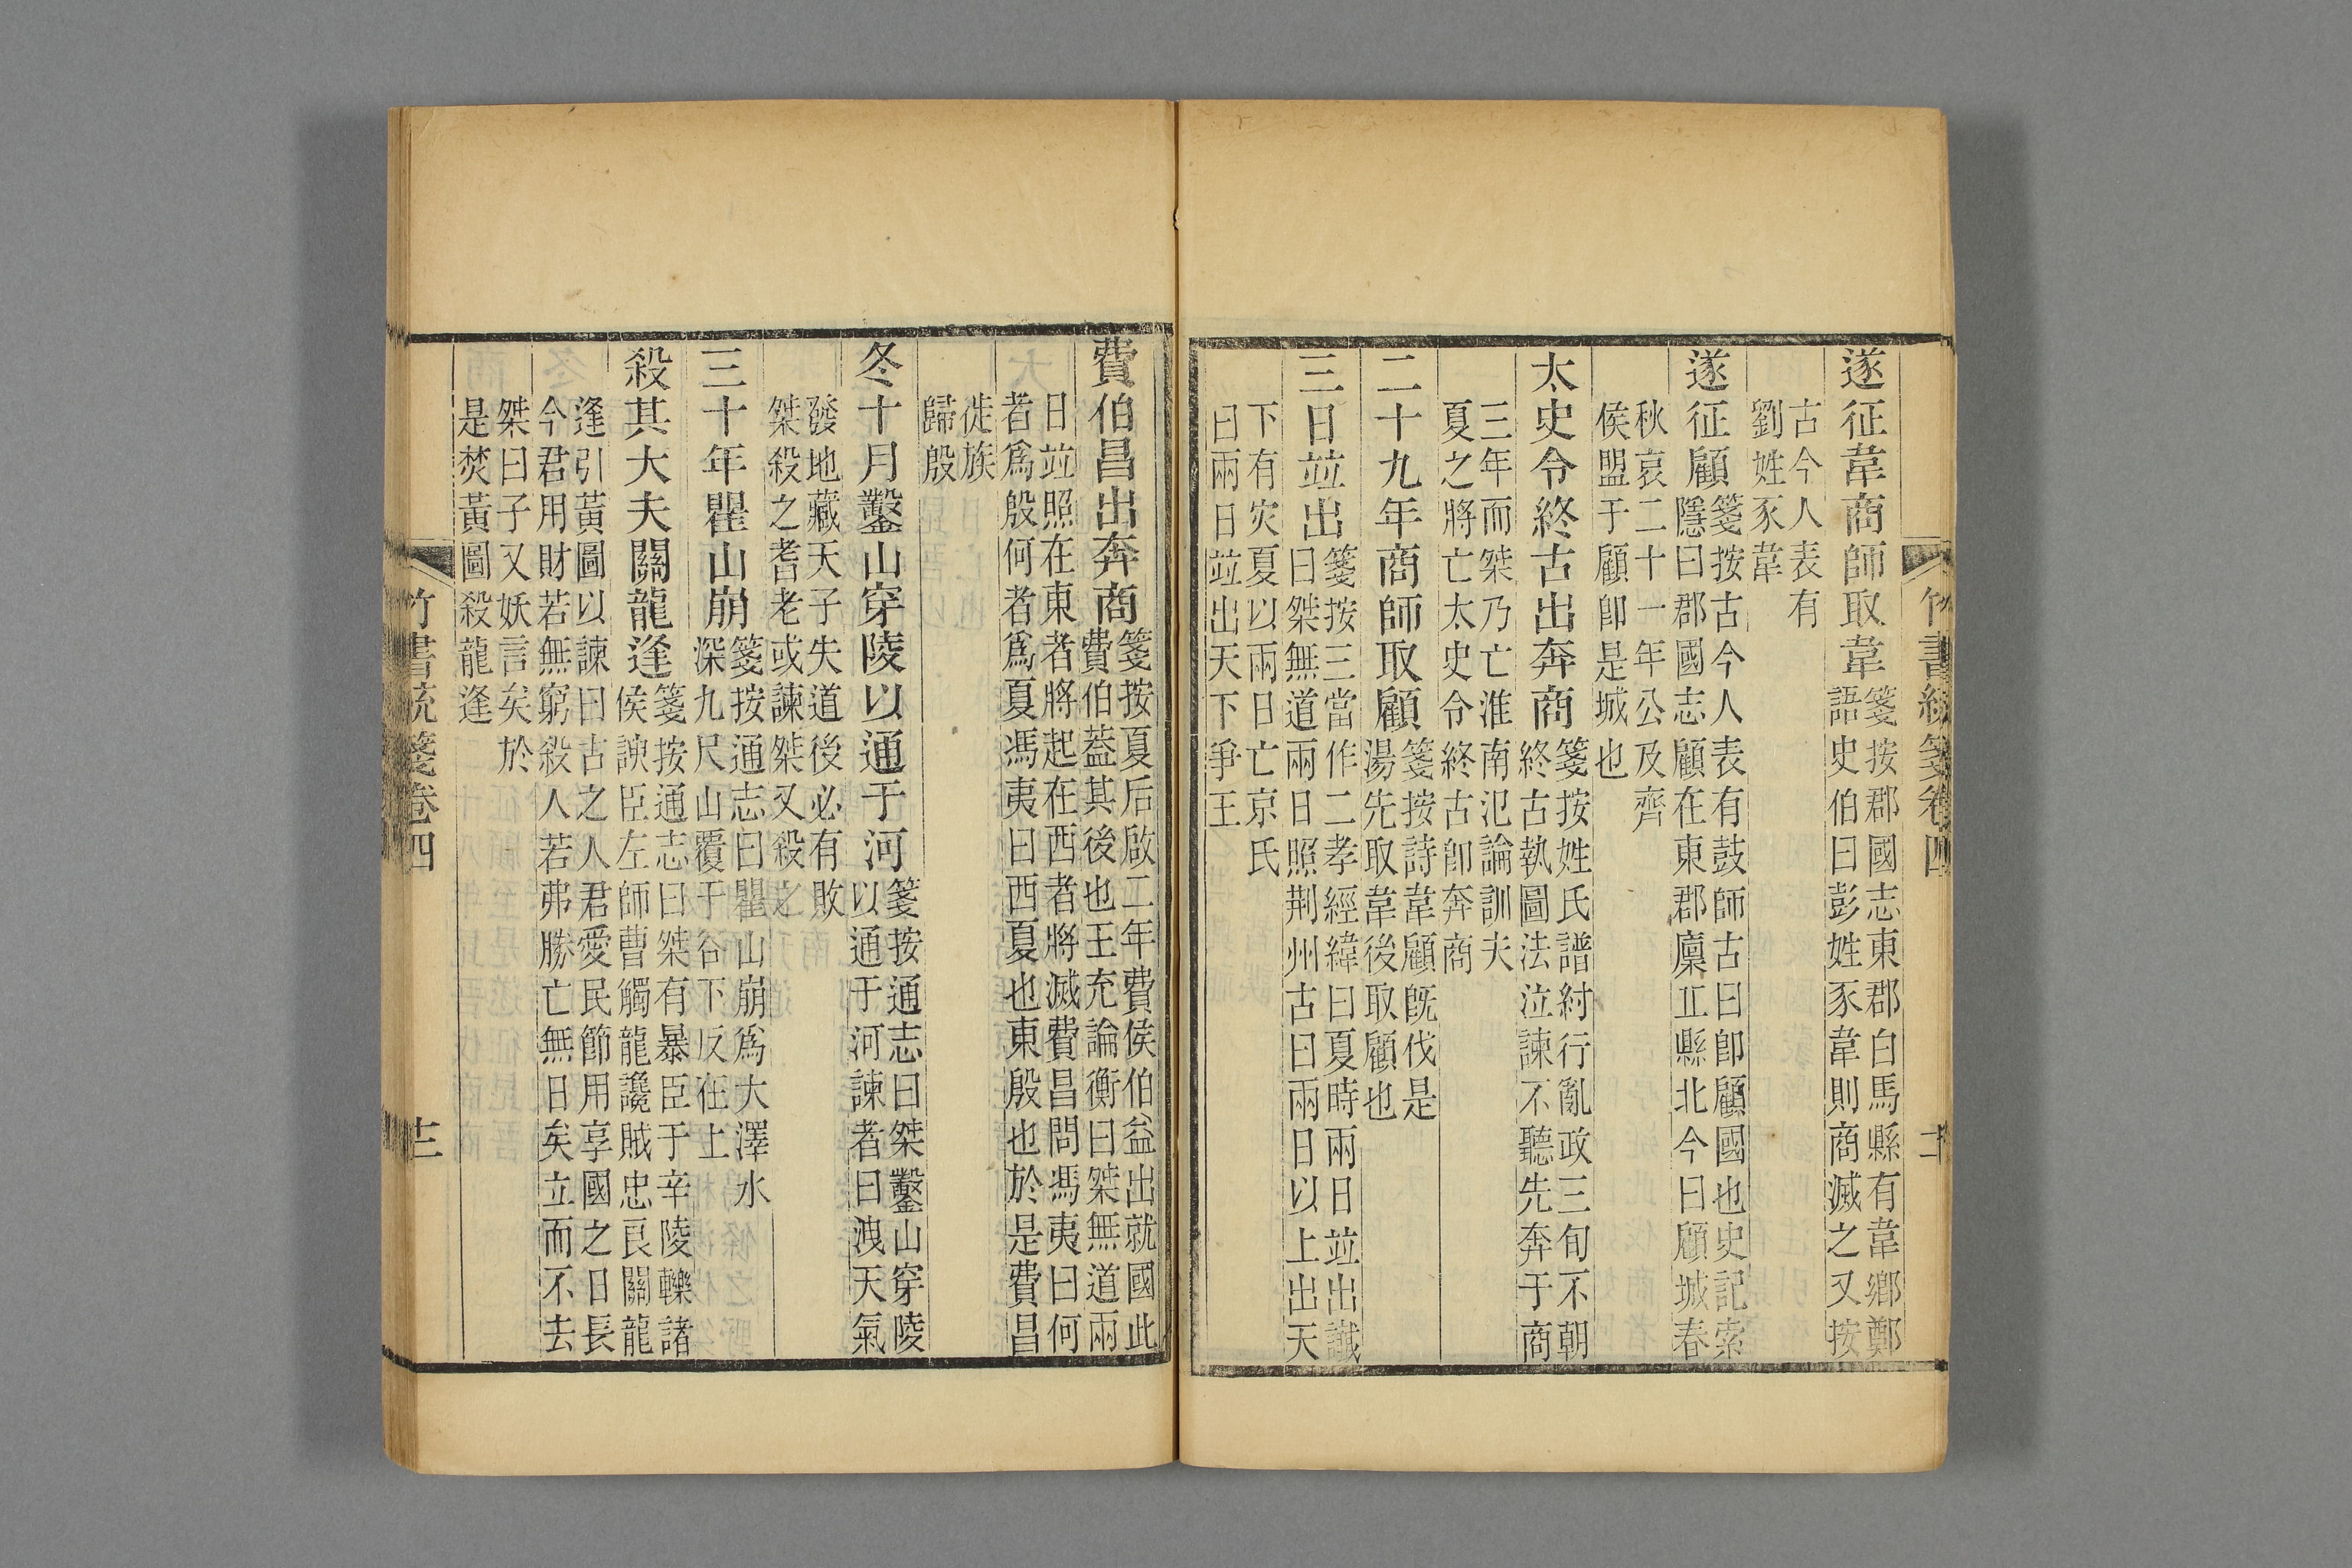 竹書統箋卷四
遂征韋商師取韋
箋按郡國志東郡白馬縣有韋鄉鄭
語史伯曰彭姓豕韋則商滅之又按
古今人表有
劉姓豕韋
遂征顧
箋按古今人表有鼓師古曰卽顧國也史記索
隱曰郡國志顧在東郡廩丠縣北今曰顧城春
秋哀二十一年公及齊
侯盟于顧卽是城也
太史令終古出奔商
箋按姓氏譜紂行亂政三旬不朝
終古執圖法泣諫不聽先奔于商
三年而桀乃亡淮南氾論訓夫
夏之將亡太史令終古卽奔商
二十九年商師取顧
箋按詩韋顧旣伐是
湯先取韋後取顧也
三日竝出
箋按三當作二孝經緯曰夏時兩日竝出讖
曰桀無道兩日照荆州古曰兩日以上出天
下有灾夏以兩日亡京氏
曰兩日竝出天下爭王
費伯昌出奔商
箋按夏后啟二年費侯伯益出就國此
費伯葢其後也王充論衡曰桀無道兩
日竝照在東者將起在西者將滅費昌問馮夷曰何
者爲殷何者爲夏馮夷曰西夏也東殷也於是費昌
徙族
歸殷
冬十月鑿山穿陵以通于河
箋按通志曰桀鑿山穿陵
以通于河諫者曰洩天氣
發地藏天子失道後必有敗
桀殺之耆老或諫桀又殺之
三十年瞿山崩
箋按通志曰瞿山崩爲大澤水
深九尺山覆于谷下反在上
殺其大夫關龍逢
箋按通志曰桀有暴臣于辛陵轢諸
侯諛臣左師曹觸龍讒賊忠良關龍
逢引黃圖以諫曰古之人君愛民節用享國之日長
今君用財若無窮殺人若弗勝亡無日矣立而不去
桀曰子又妖言矣於
是焚黃圖殺龍逢
竹書統箋卷四